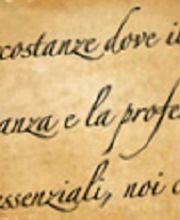 costanze dove i
anza e la profe
essenziali, noi c